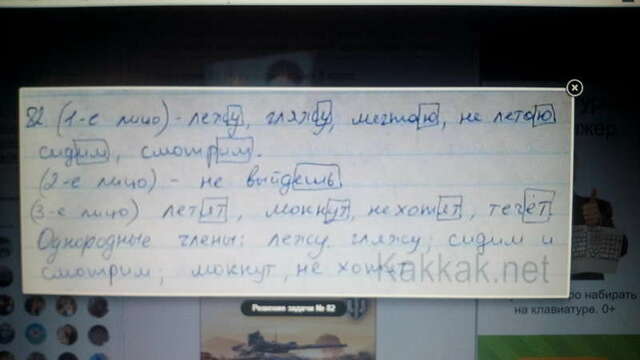 82. (1-е лицо) - лежу, гляжу, мечтаю, не летаю
сидим, смотрим.
(2-е лицо) - не выйдешь
(3-е лицо) летят, мокнут, не хотят, течёт.
Однородные члены: лежу, гляжу; сидим и
смотрим; мокнут, не хотят
Kakkak.net
Решение задачи № 82
набирать
на клавиатуре. 0+